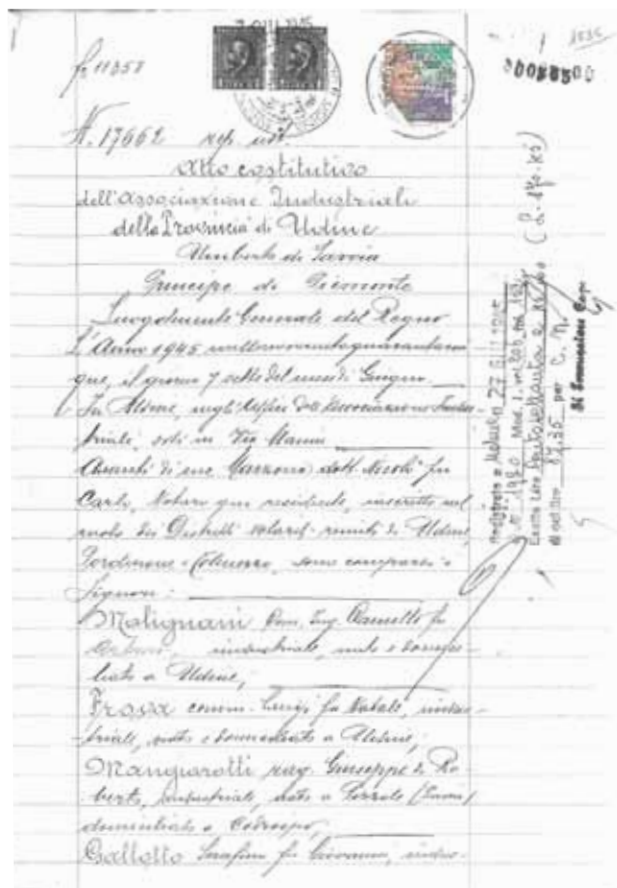 7 GIU 1945
1535
fr 11358
N. 17662 rep. not.
Atto costitutivo
dell'Associazione Industriali
della Provincia di Udine
Umberto di Savoia
Principe di Piemonte
Luogotenente Generale del Regno
L'Anno 1945 millenovecentoquarantacin
que, il giorno 7 sette del mese di Giugno.
In Udine, negli Uffici dell'Associazione Indu-
striali, siti in Via Manin
Avanti di me Marzona dott. Nicolò fu
Carlo, Notaro qui residente, inscritto nel
ruolo dei Distretti notarili riuniti di Udine,
Pordenone e Tolmezzo, sono comparsi i
Signori:
Malignani Ing. Camillo fu
Arturo, industriale, nato e domici-
liato a Udine,
Frova comm. Luigi fu Natale, indu-
striale, nato e domiciliato a Udine,
Mangiarotti rag. Giuseppe di Ro-
berto, industriale, nato a
domiciliato a Codroipo,
Gallotto Serafino fu Giovanni, indus-
Registrato a Udine li 27 GIU 1945
N° 1980 Mod. 1. vol.
Esatte Lire
87,35 per C. N.